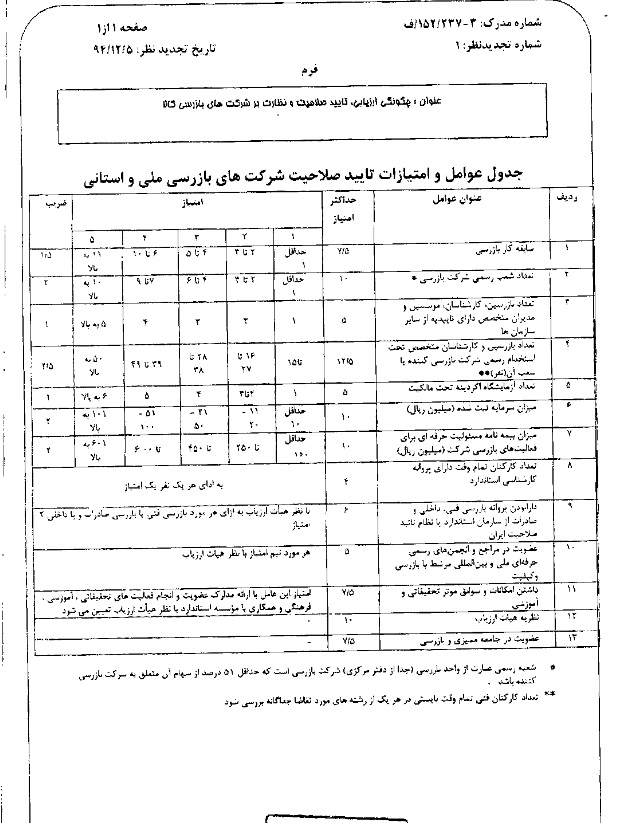 شماره مدرک: ۳-۱۵۲/۲۳۷/ف
صفحه ۱از۱
شماره تجدیدنظر: ۱
تاریخ تجدید نظر: ۹۴/۱۲/۵
فرم
عنوان : چگونگی ارزیابی، تایید صلاحیت و نظارت بر شرکت های بازرسی کالا
جدول عوامل و امتیازات تایید صلاحیت شرکت های بازرسی ملی و استانی
ردیف عنوان عوامل حداکثر امتیاز امتیاز ضریب
۱ ۲ ۳ ۴ ۵
۱ سابقه کار بازرسی ۷/۵ حداقل ۱ ۲ تا ۳ ۴ تا ۵ ۶ تا ۱۰ ۱۱ به بالا ۱/۵
۲ تعداد شعب رسمی شرکت بازرسی * ۱۰ حداقل ۱ ۲ تا ۳ ۴ تا ۶ ۷ تا ۹ ۱۰ به بالا ۲
۳ تعداد بازرسین، کارشناسان، موسسین و
مدیران متخصص دارای تاییدیه از سایر
سازمان ها ۵ ۱ ۲ ۳ ۴ ۵ به بالا ۱
۴ تعداد بازرسین و کارشناسان متخصص تحت
استخدام رسمی شرکت بازرسی کننده یا
شعب آن(نفر)** ۱۲/۵ تا۱۵ ۱۶ تا ۲۷ ۲۸ تا ۳۸ ۳۹ تا ۴۹ ۵۰ به بالا ۲/۵
۵ تعداد آزمایشگاه اکردیته تحت مالکیت ۵ ۱ ۲تا۳ ۴ ۵ ۶ به بالا ۱
۶ میزان سرمایه ثبت شده (میلیون ریال) ۱۰ حداقل ۱۰ ۱۱ - ۲۰ ۲۱ - ۵۰ ۵۱ - ۱۰۰ ۱۰۱ به بالا ۲
۷ میزان بیمه نامه مسئولیت حرفه ای برای
فعالیت‌های بازرسی شرکت (میلیون ریال) ۱۰ حداقل تا ۲۵۰ تا ۴۵۰ تا ۶۰۰ ۶۰۱ به بالا ۲
۸ تعداد کارکنان تمام وقت دارای پروانه
کارشناسی استاندارد ۴ به ازای هر یک نفر یک امتیاز
۹ دارابودن پروانه بازرسی فنی، داخلی و
صادرات از سازمان استاندارد یا نظام تایید
صلاحیت ایران ۶ با نظر هیأت ارزیاب به ازای هر مورد بازرسی فنی یا بازرسی صادرات و یا داخلی ۲
امتیاز
۱۰ عضویت در مراجع و انجمن‌های رسمی
حرفه‌ای ملی و بین‌المللی مرتبط با بازرسی
وکیفیت ۵ هر مورد نیم امتیاز با نظر هیات ارزیاب
۱۱ داشتن امکانات و سوابق موثر تحقیقاتی و
آموزشی ۷/۵ امتیاز این عامل با ارئه مدارک عضویت و انجام فعالیت های تحقیقاتی ، آموزشی ،
فرهنگی و همکاری با مؤسسه استاندارد با نظر هیأت ارزیاب تعیین می شود
۱۲ نظریه هیات ارزیاب ۱۰ -
۱۳ عضویت در جامعه ممیزی و بازرسی ۷/۵ -
* شعبه رسمی عبارت از واحد بازرسی (جدا از دفتر مرکزی) شرکت بازرسی است که حداقل ۵۱ درصد از سهام آن متعلق به شرکت بازرسی
کننده باشد .
** تعداد کارکنان فنی تمام وقت بایستی در هر یک از رشته های مورد تقاضا جداگانه بررسی شود